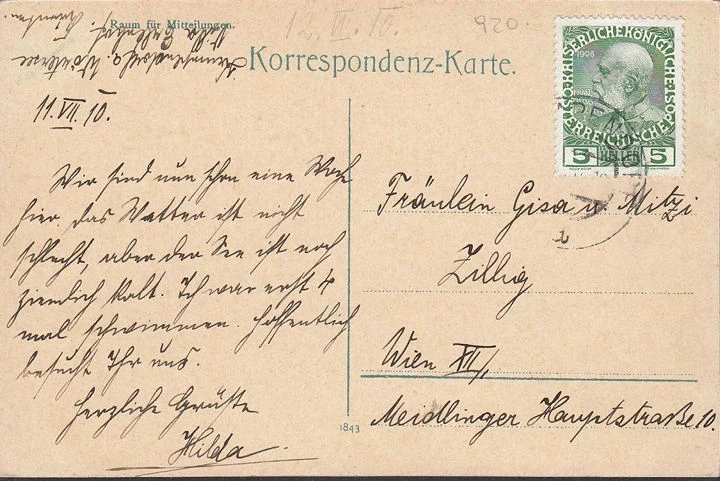 Raum für Mitteilungen.
12. VII. 10.
920.
Korrespondenz-Karte.
11. VII. 10.
Wir sind nun schon eine Woche
hier. das Wetter ist nicht
schlecht, aber der See ist noch
ziemlich kalt. Ich war erst 4
mal schwimmen. Hoffentlich
besucht Ihr uns.
Herzliche Grüsse
Hilda
Fräulein Gisa u Mitzi
Zillig
Wien XII/1
Meidlinger Hauptstraße 10.
KAISERLICHE KÖNIGLICHE
ÖSTERREICHISCHE POST
1908
FRANZ
5 HELLER 5
1843
Villa